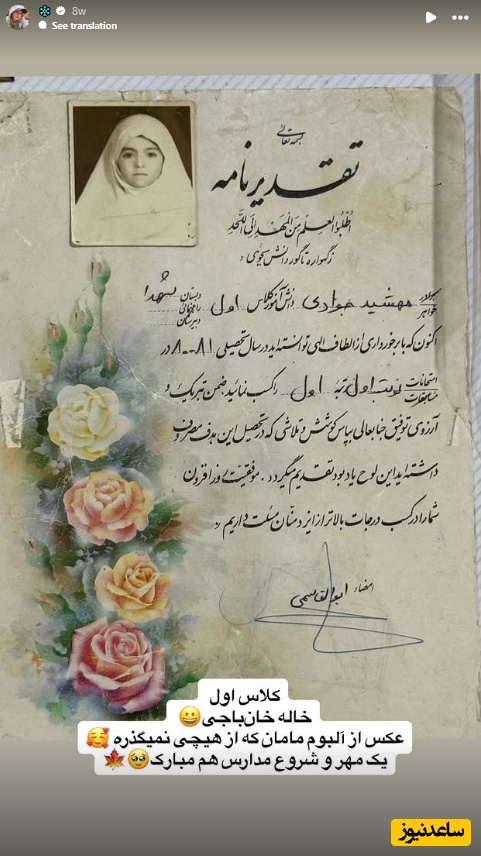 8w
See translation
بسمه تعالی
تقدیرنامه
اُطْلُبُوا العِلْمَ مِنَ الْمَهْدِ اِلَی اللَّحَدِ
ز گهواره تا گور دانش بجوی
برادر خواهر مهشید جوادی دانش آموز کلاس اول دبستان راهنمائی دبیرستان شهدا
اکنون که با برخورداری از الطاف الهی توانسته اید در سال تحصیلی ۸۱-۸۰ در
امتحانات مسابقات نوبت اول رتبه اول را کسب نمائید ضمن تبریک و
آرزوی توفیق جنابعالی بپاس کوشش و تلاشی که در تحصیل این هدف مصروف
داشته اید این لوح یادبود تقدیم میگردد. موفقیت روزافزون
شما را در کسب درجات بالاتر از ایزد منّان مسئلت داریم
امضاء ابوالقاسمی
کلاس اول
خاله خان‌باجی😀
عکس از آلبوم مامان که از هیچی نمیگذره 🥰
یک مهر و شروع مدارس هم مبارک🥹🍁
ساعدنیوز